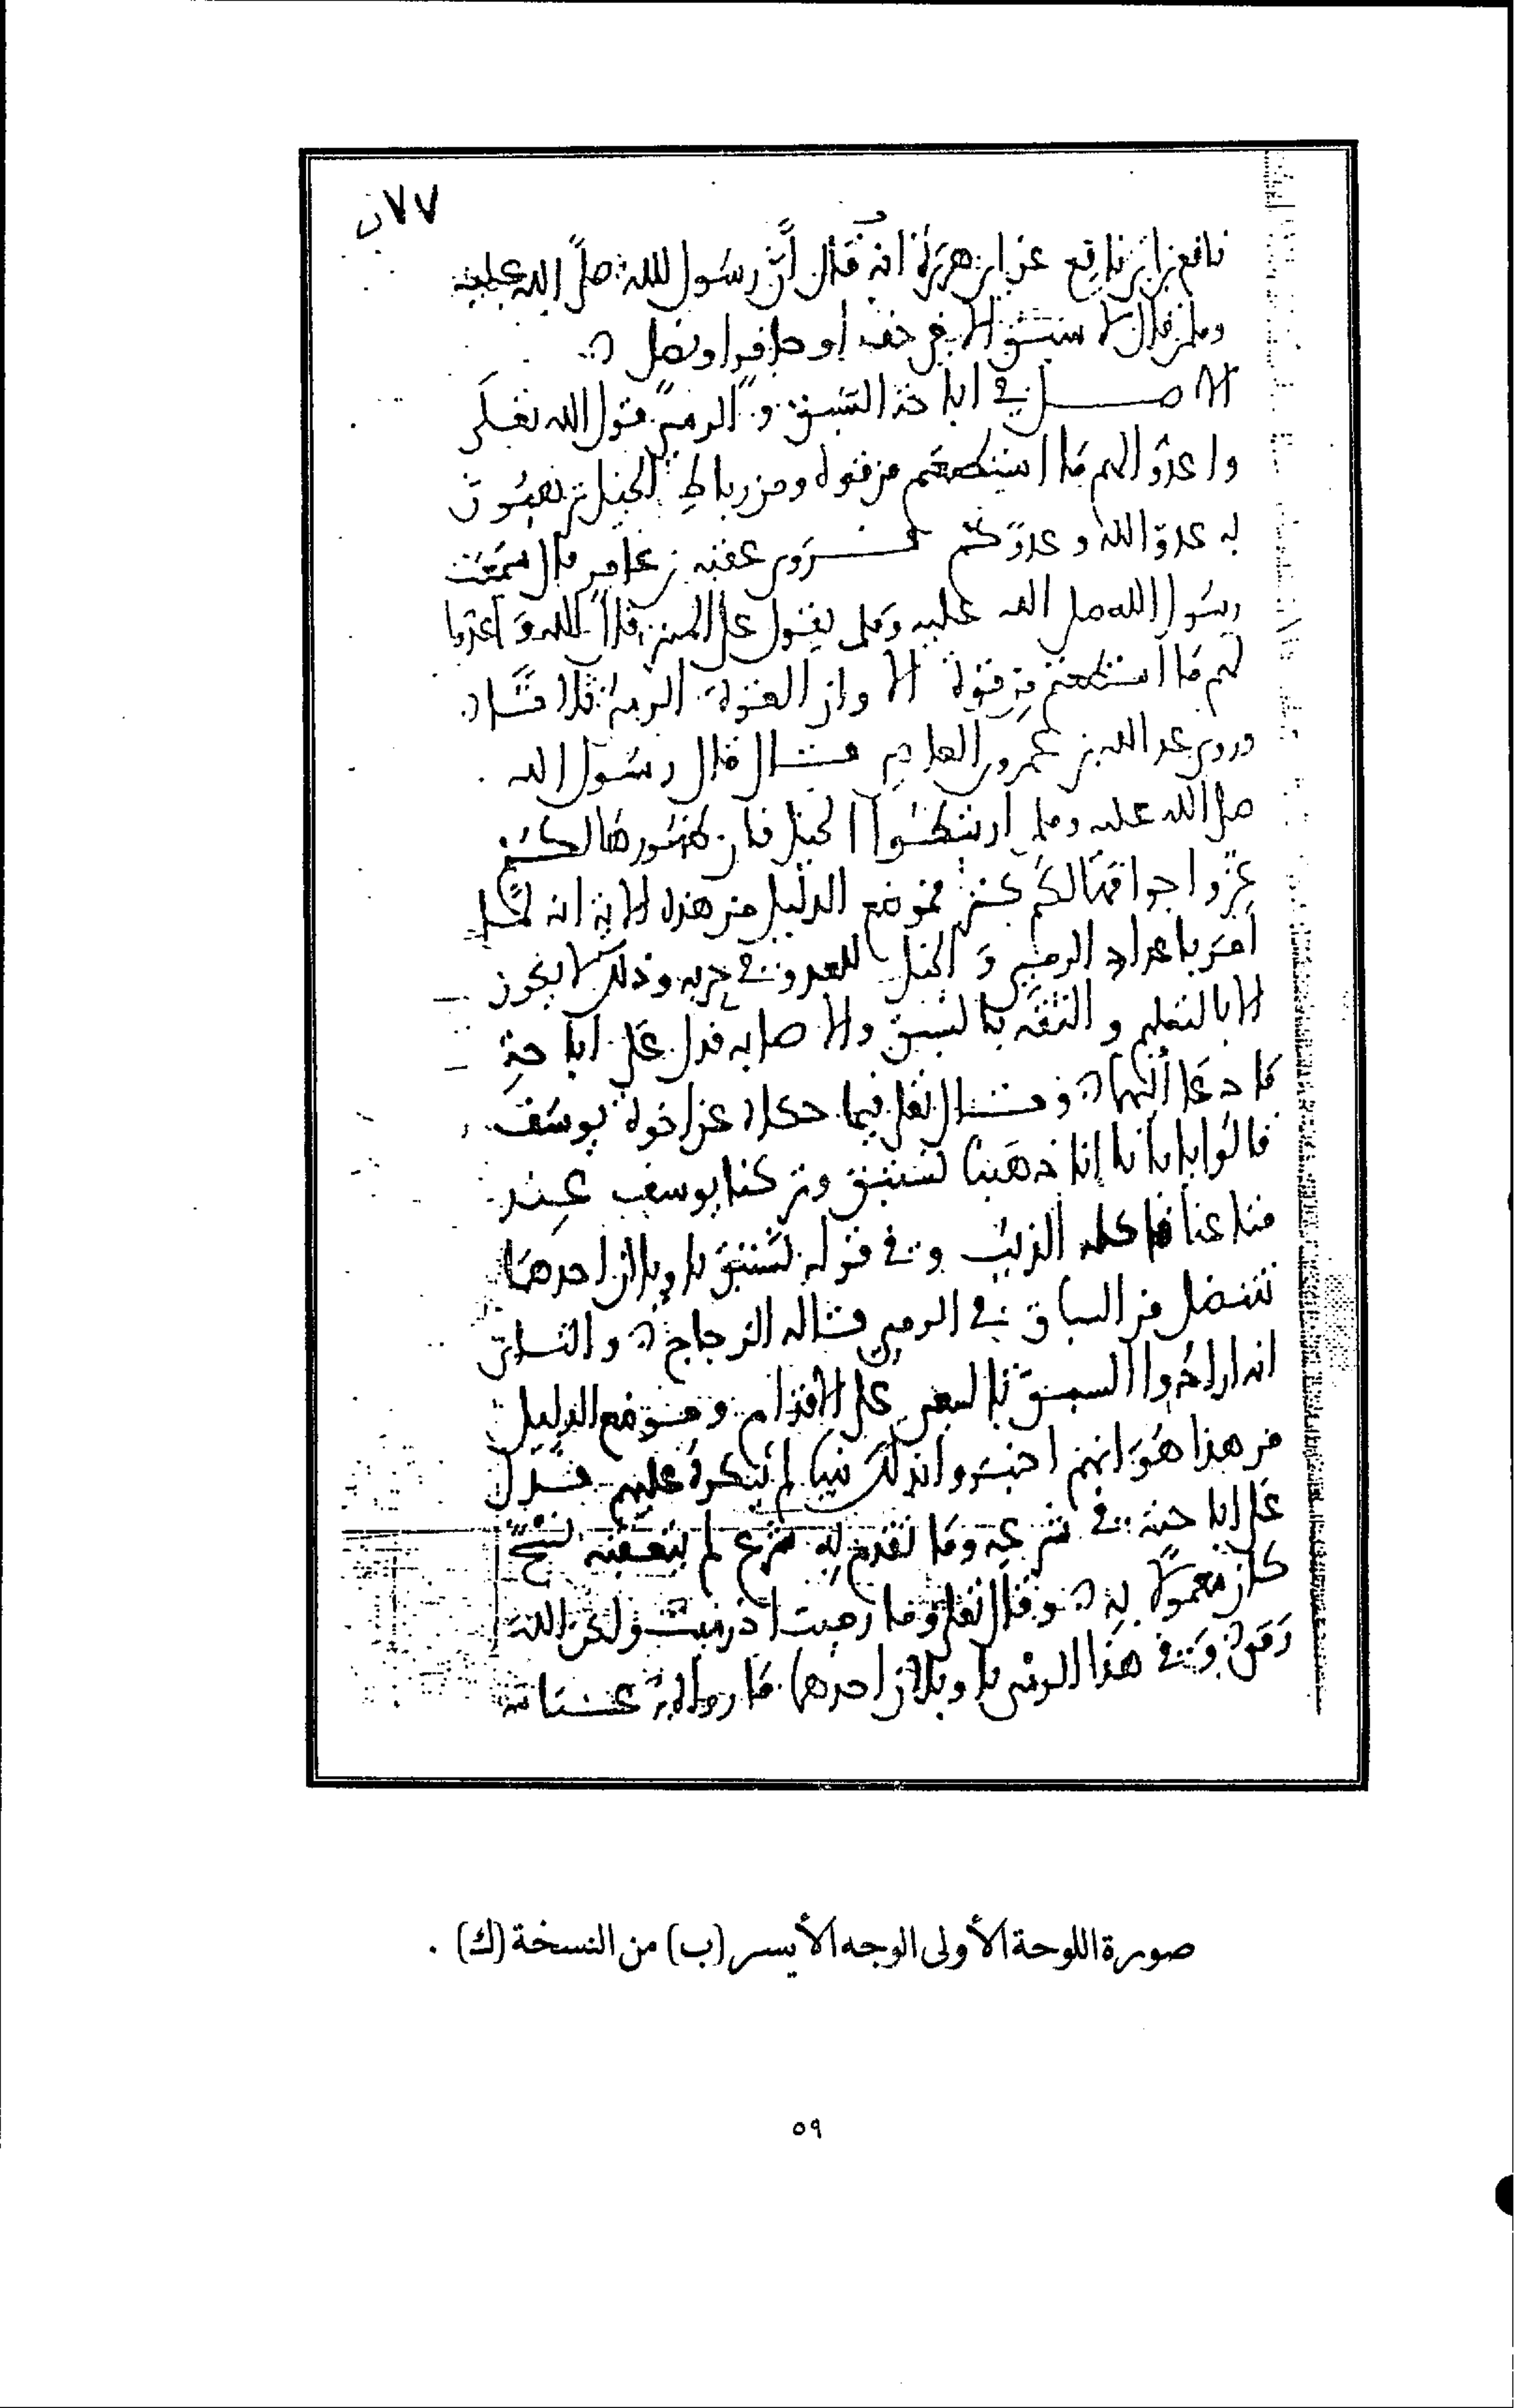 ٧٧ب
نافع بن ابي نافع عن ابي هريرة انه قال أن رسول الله صلى الله عليه
وسلم قال لا سبق الا في خف او حافر او نصل
الاصل في اباحة السبق والرمي قول الله تعالى
واعدوا لهم ما استطعتم من قوة ومن رباط الخيل ترهبون
به عدو الله وعدوكم وروى عقبة بن عامر قال سمعت
رسول الله صلى الله عليه وسلم يقول على المنبر قال الله واعدوا
لهم ما استطعتم من قوة الا وان القوة الرمي ثلاثا
وروى عبد الله بن عمرو بن العاص قال قال رسول الله
صلى الله عليه وسلم ارتبطوا الخيل فان ظهورها لكم
عز واجوافها لكم كنز فموضع الدليل من هذه الاية انه لما
أمر باعداد الرمي والخيل للعدو في حربه وذلك لا يكون
الا بالتعلم والثقة بالسبق والاصابة فدل على اباحة
ما دعا اليهما وقال تعالى فيما حكاه عن اخوة يوسف
قالوا يا ابانا انا ذهبنا نستبق وتركنا يوسف عند
متاعنا فاكله الذيب وفي قوله نستبق تاويلان احدهما
ننتضل من السباق في الرمي قاله الزجاج والثاني
انه ارادوا السبق بالسعي على الاقدام وموضع الدليل
من هذا هو انهم اخبروا بذلك نبيا لم ينكره عليهم فدل
على اباحته في شرعه وما تقدم به شرع لم يتعقبه نسخ
كان معمولا به وقال تعالى وما رميت اذ رميت ولكن الله
رمى وفي هذا الرمي تاويلان احدهما ما رواه
صورة اللوحة الأولى الوجه الأيسر (ب) من النسخة (ك) .
٥٩